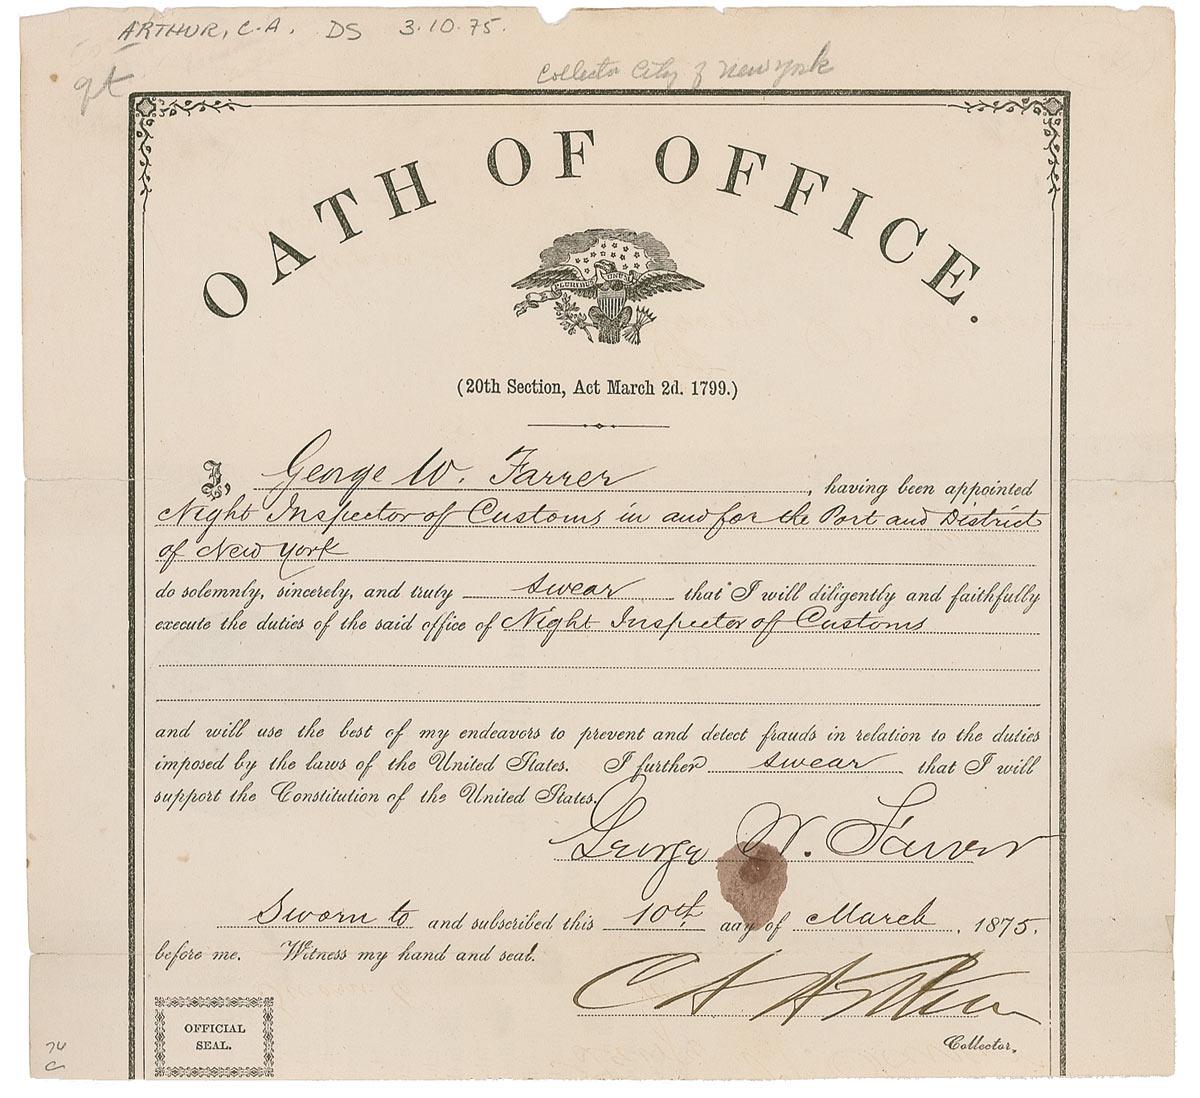 ARTHUR, C.A. DS 3.10.75.
Collector City of New York
qt
OATH OF OFFICE.
PLURIBUS UNUM
(20th Section, Act March 2d. 1799.)
I, George W. Farrer, having been appointed
Night Inspector of Customs in and for the Port and District
of New York
do solemnly, sincerely, and truly swear that I will diligently and faithfully
execute the duties of the said office of Night Inspector of Customs
and will use the best of my endeavors to prevent and detect frauds in relation to the duties
imposed by the laws of the United States. I further swear that I will
support the Constitution of the United States.
George W. Farrer
Sworn to and subscribed this 10th day of March, 1875.
before me. Witness my hand and seal.
C A Arthur
Collector,
OFFICIAL
SEAL.